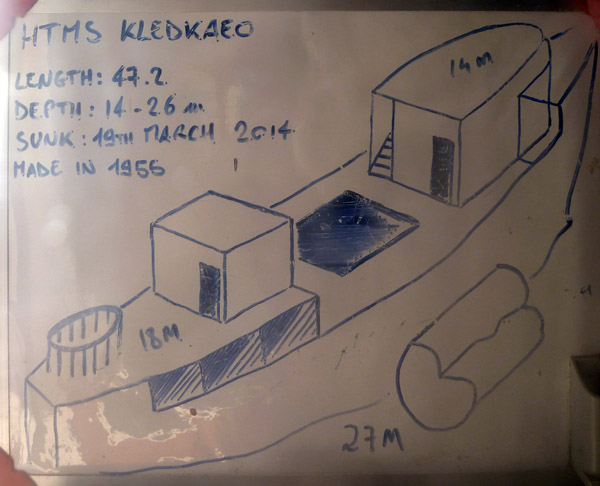 HTMS KLEDKAEO
LENGTH: 47.2
DEPTH: 14-26 m
SUNK: 19TH MARCH 2014
MADE IN 1956
14M
18M
27M